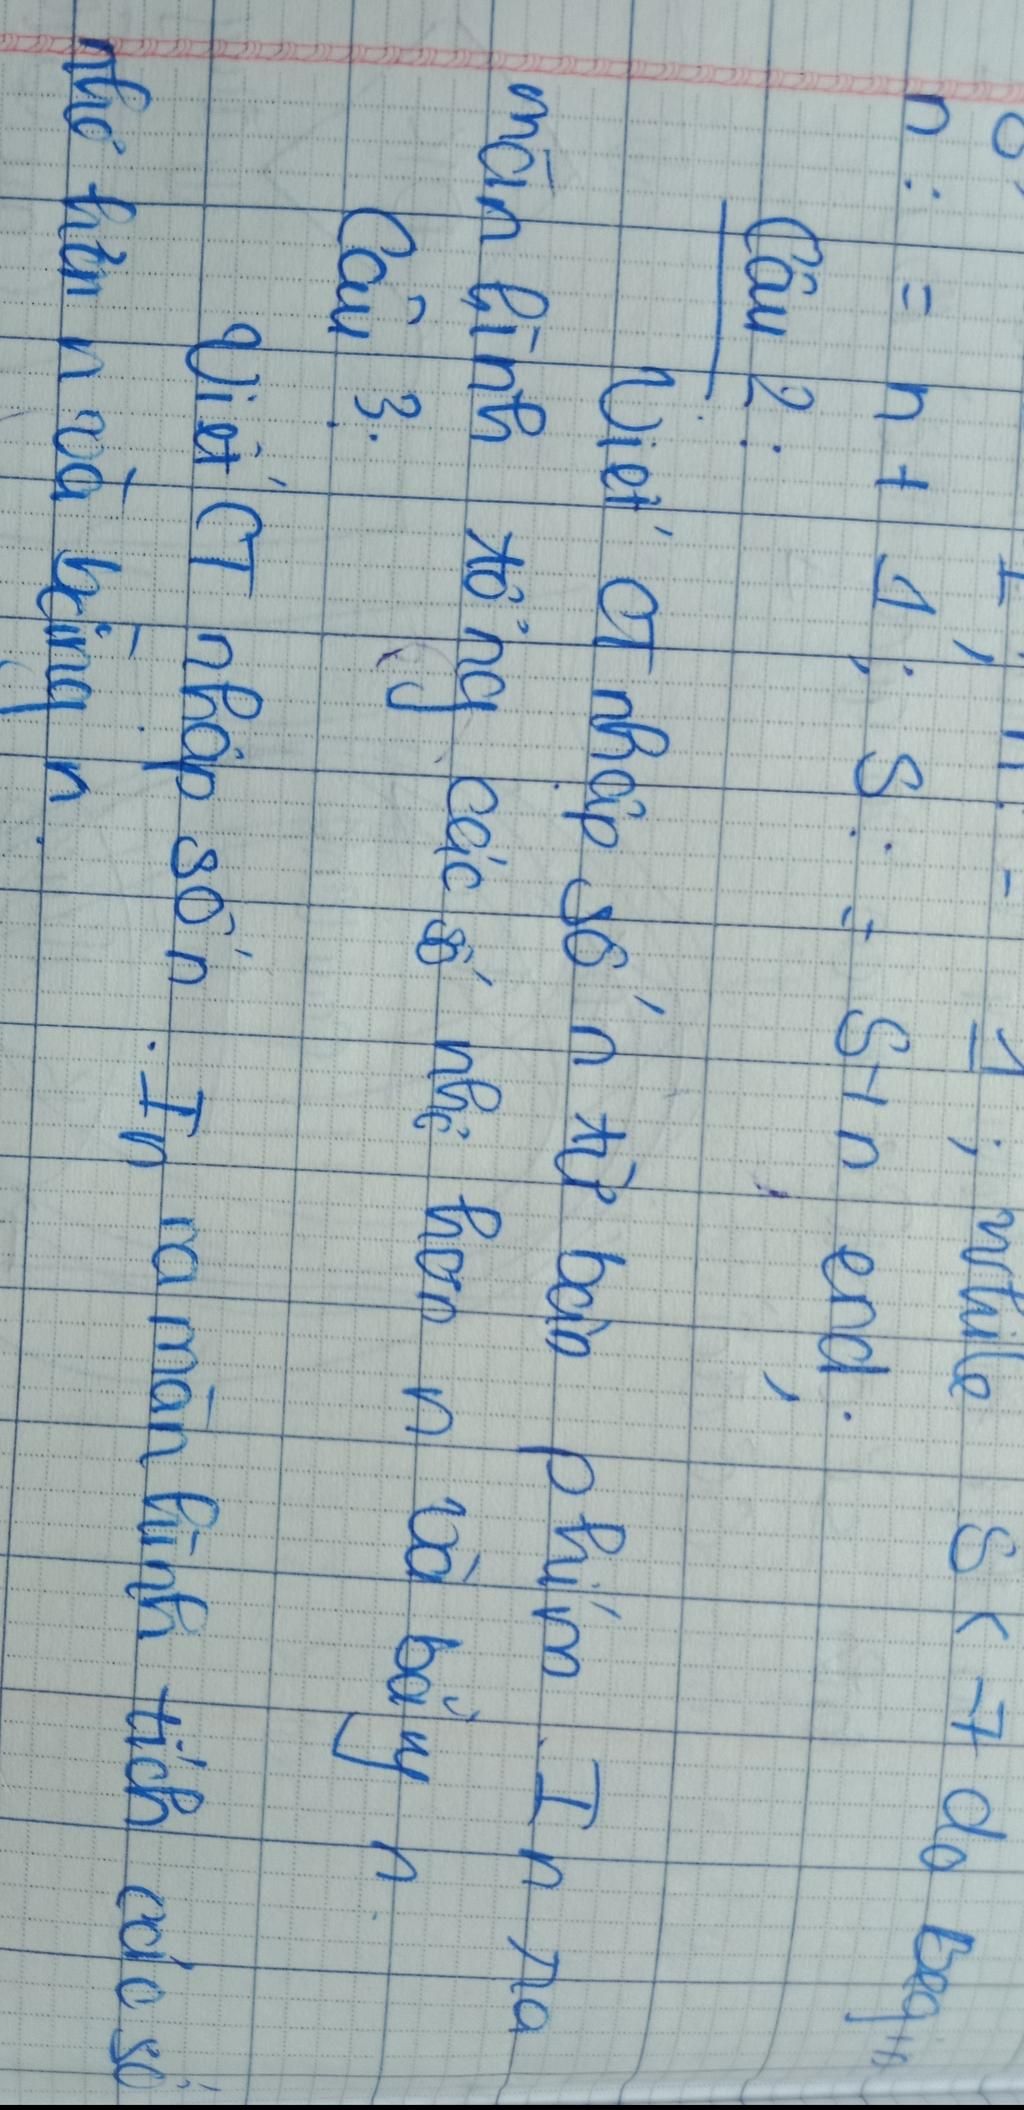 1; n: = 1; while S < 7 do Begin
n: = n + 1; S: = S + n end;
Câu 2:
Viết CT nhập số n từ bàn phím. In ra
màn hình tổng các số nhỏ hơn n và bảy n.
Câu 3:
Viết CT nhập số n. In ra màn hình tích các số
nhỏ hơn n và bằng n.